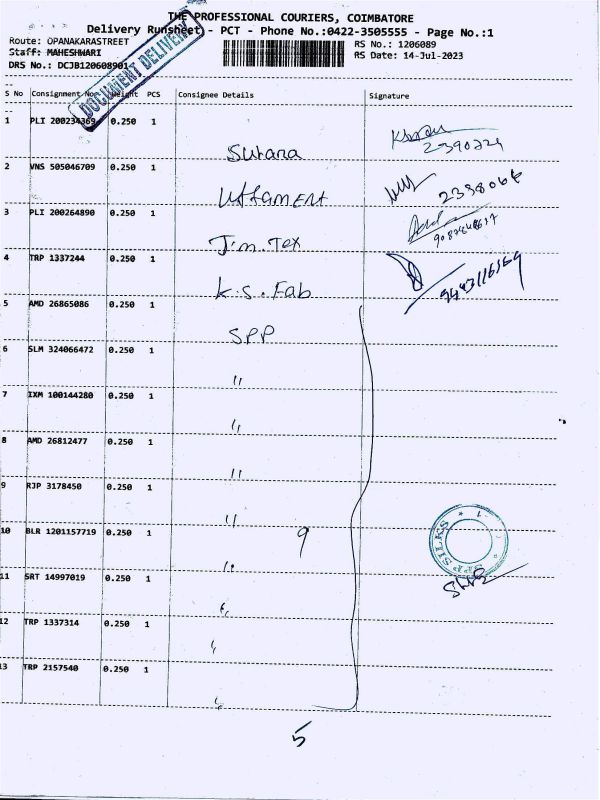 THE PROFESSIONAL COURIERS, COIMBATORE
Delivery Runsheet - PCT - Phone No.:0422-3505555 - Page No.:1
Route: OPANAKARASTREET
RS No.: 1206089
Staff: MAHESHWARI
RS Date: 14-Jul-2023
DRS No.: DCJB1206089014
DOCUMENT DELIVERY
S No Consignment No. Weight PCS Consignee Details Signature
1 PLI 200234369 0.250 1
Surana
2390224
2 VNS 505046709 0.250 1
2 PLI 200264890 0.250 1
Jim. Tex
4 TRP 1337244 0.250 1
K.S. Fab
9443116564
5 AMD 26865086 0.250 1
SPP
6 SLM 324066472 0.250 1
"
7 IXM 100144280 0.250 1
"
8 AMD 26812477 0.250 1
"
9 RJP 3178450 0.250 1
"
9
10 BLR 1201157719 0.250 1
"
SPP SILKS
11 SRT 14997019 0.250 1
"
12 TRP 1337314 0.250 1
"
13 TRP 2157540 0.250 1
"
5